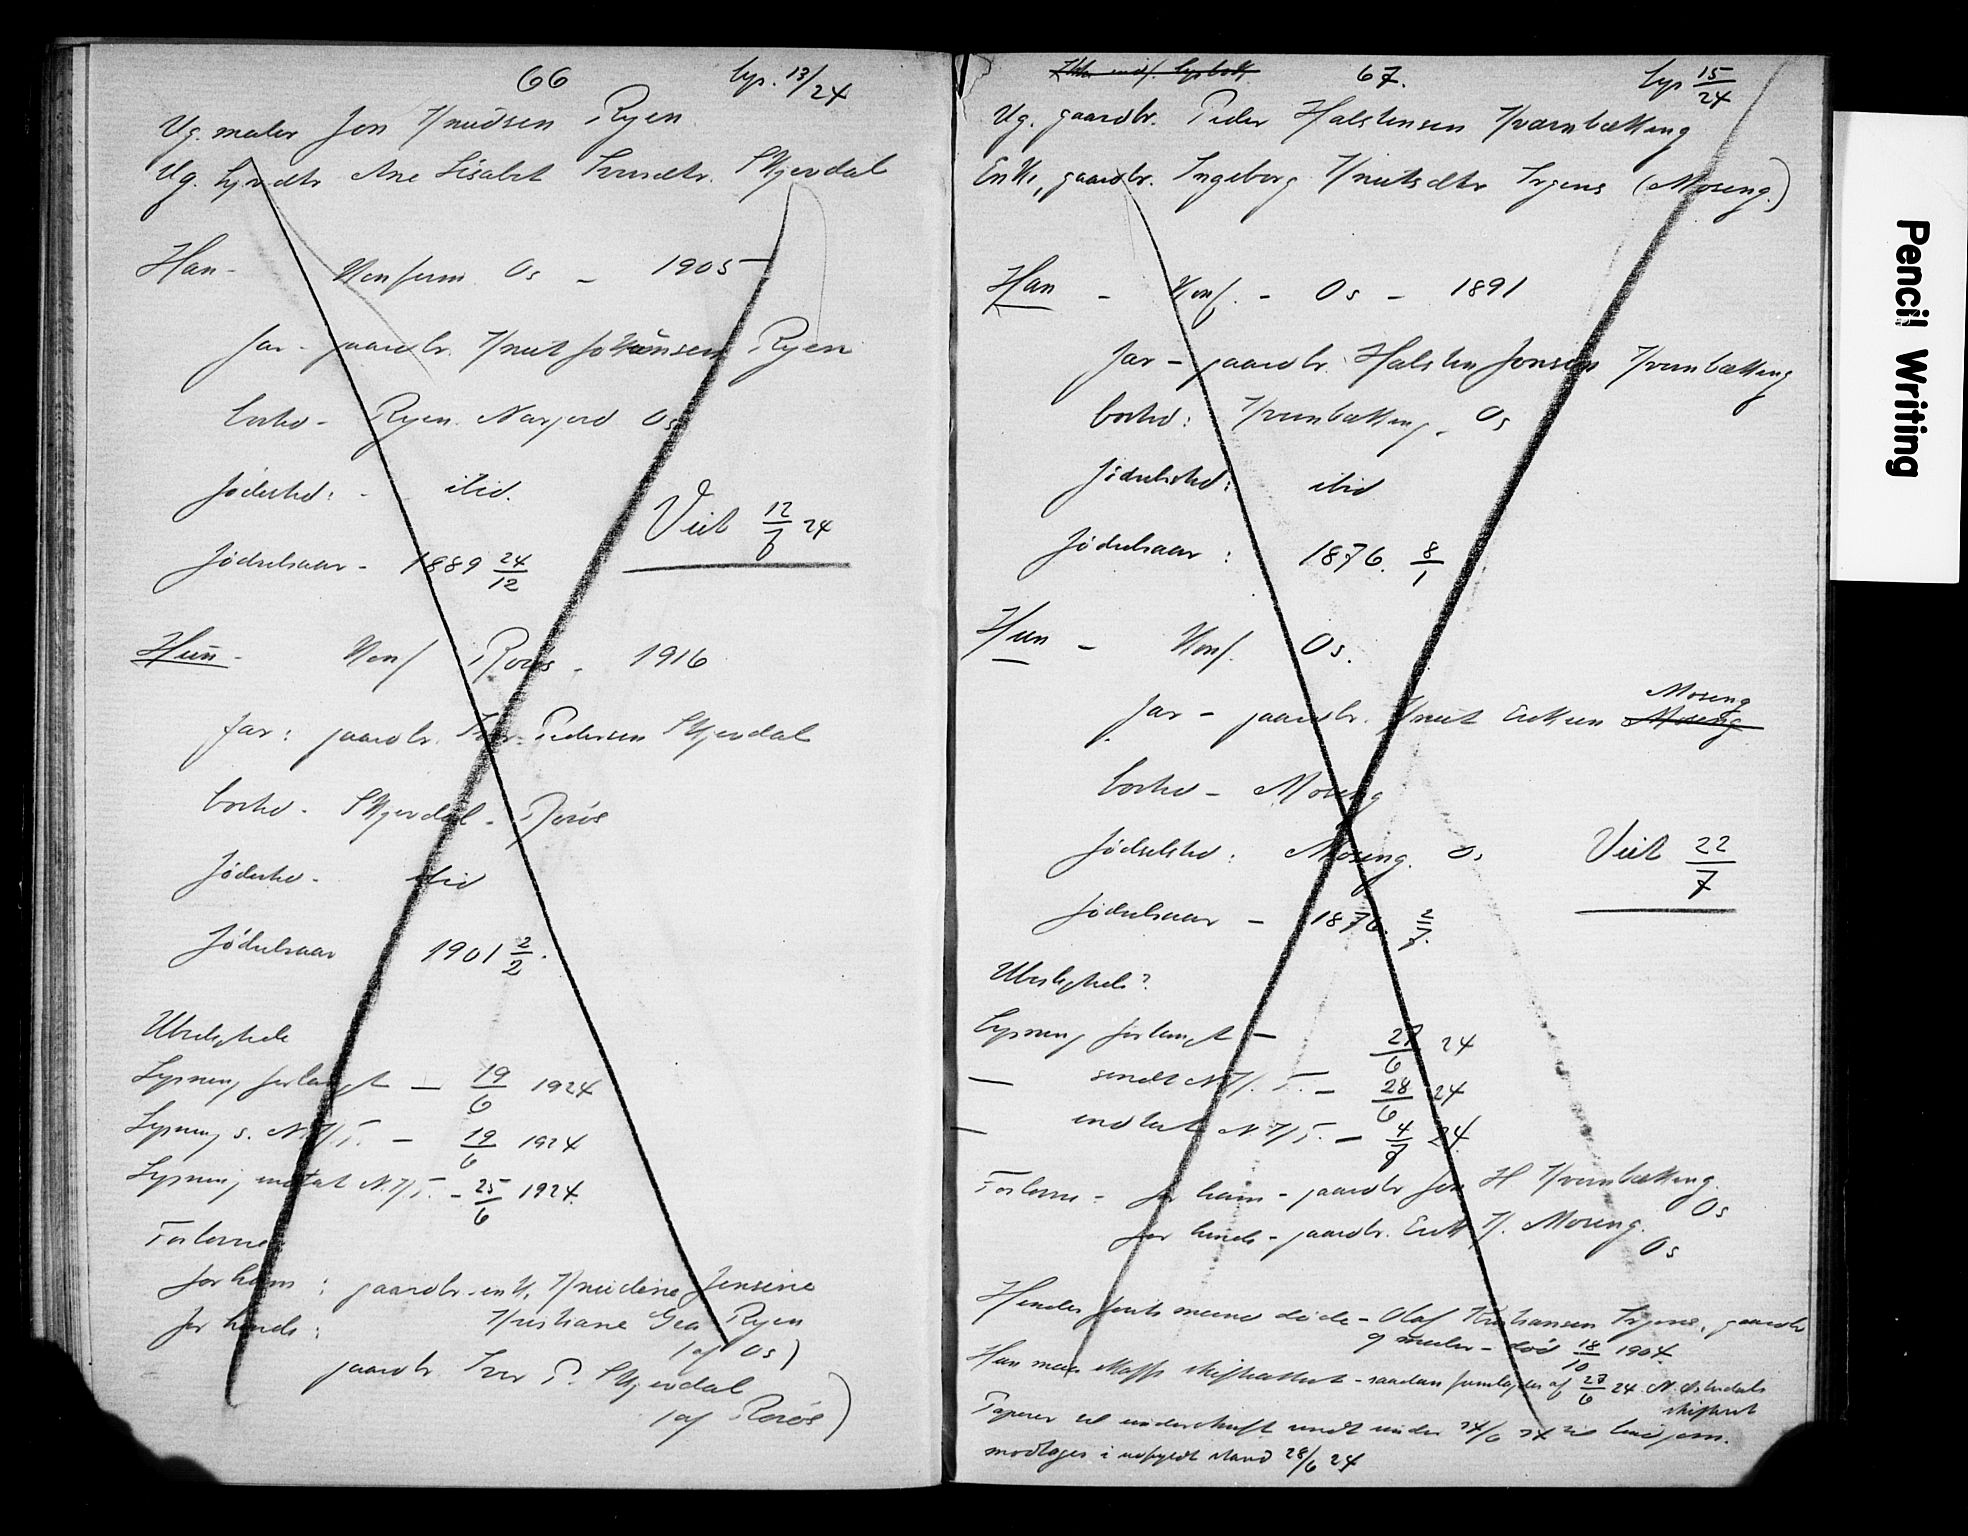 66
Lys. 13/24
Ug. maler Jon Knudsen Ryen
Ug. Ane Lisabet Iversdtr. Skjevdal
Han -
Konfirm Os - 1905
far - gaardbr. Knut Johansen Ryen
bosted - Ryen Narjord Os
fødested: - ibid.
Viet 12/7 24
fødselsaar - 1889 24/12
Hun -
Konf Røros - 1916
far: gaardbr. Iver Pedersen Skjevdal
bosted - Skjevdal - Røros
fødested - ibid
fødselsaar 1901 2/2.
Ubeslægtede
Lysning forlangt - 19/6 1924
Lysning s. N.K.T. - 19/6 1924
Lysning indtat N.K.T. - 25/6 1924.
Forlovere
for ham: gaardbr. enk. Knudine Jensine
Kristiane Gea Ryen
(af Os)
for hende:
gaardbr Iver P. Skjevdal
(af Røros)
67.
Lys 15/24
Ug. gaardbr. Peder Halstensen Kværnbækkeng
Enke, gaardbr. Ingeborg Knutsdtr Trgens (Moseng)
Han - Konf. - Os - 1891
far - gaardbr. Halsten Jonsen Kvernbækkeng
bosted: Kvernbækkeng. Os
fødselssted: ibid
fødselsaar: 1876. 8/1
Hun - Konf. Os.
Moseng
far - gaardbr. Knut Eriksen Moseng
bosted - Moseng
fødselssted: Moseng. Os
Viet 22/7
fødselsaar - 1876. 2/7.
Ubeslægtede?
Lysning forlangt - 27/6 24
— sendt N.K.T. - 28/6 24
— indtat N.K.T. - 4/7 24.
Forlovere - for ham - gaardbr Jon H Kvernbækkeng.
Os
for hende - gaardbr. Erik K. Moseng.
Os
Hendes første mand døde - Olaf Kristiansen, gaardbr
og maler - død 18/10 1904.
Hun maa skaffe skifteattest - saadan fremlagdes af 27/6 24 N. Østerdals
skifteret
Papirer til underskrift sendt under 24/6 24 til
modtages i utfyldt stand 28/6 24
Pencil Writing